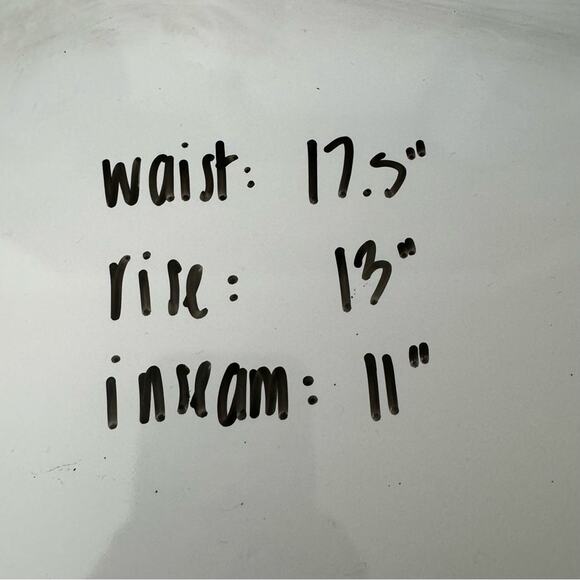 waist: 17.5"
rise: 13"
inseam: 11"